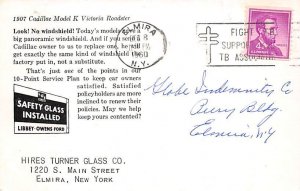 1907 Cadillac Model K Victoria Roadster
Look! No windshield! Today's models have a
big panoramic windshield. And if you
Cadillac owner to us to replace one, he will
exactly the same kind of windshield
factory put in, not a substitute.
That's just one of the points in our
10-Point Service Plan to keep car owners
satisfied. Satisfied
policyholders are more
inclined to renew their
policies. May we help
keep yours contented?
SAFETY GLASS
INSTALLED
LIBBEY·OWENS·FORD
HIRES TURNER GLASS CO.
1220 S. Main Street
Elmira, New York
ELMIRA
1960
N.Y.
FIGHT TB
SUPPORT
TB ASSOCIATION
Globe Indemnity Co
Bldg.
Elmira, NY